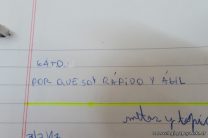 GATO.
POR QUE SOY RÁPIDO Y ÁGIL
mitos y